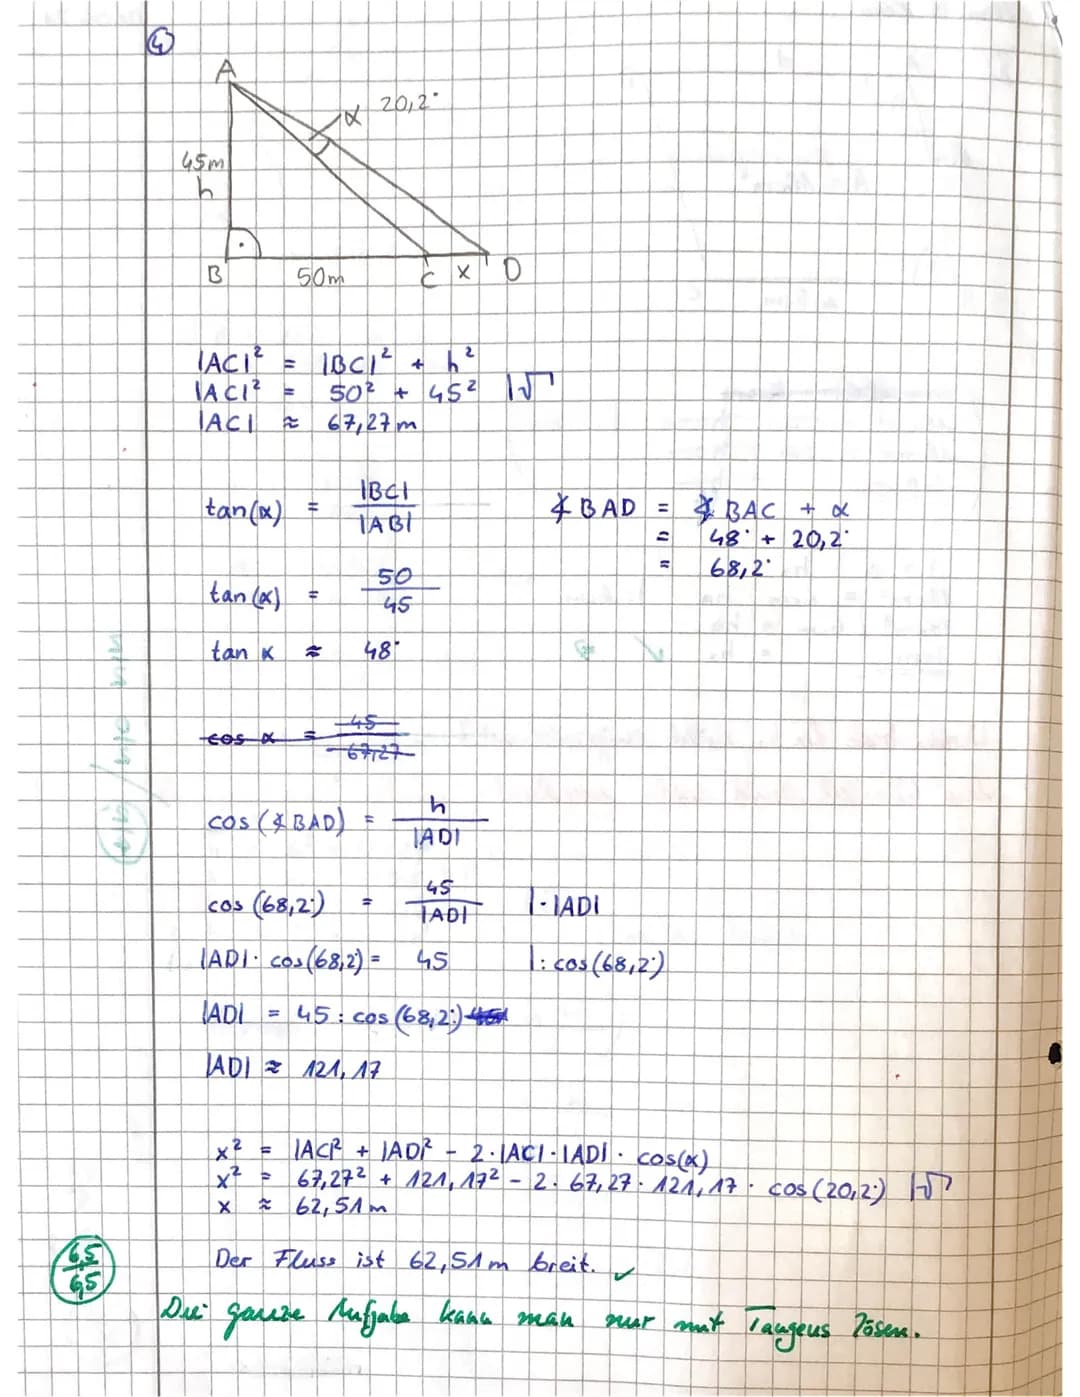 4
A
α 20,2°
45m
h
B 50m C x D
|AC|² = |BC|² + h²
|AC|² = 50² + 45² |√
|AC| ≈ 67,27m
tan(α) = |BC| / |AB|
tan(α) = 50 / 45
tan α ≈ 48°
∡BAD = ∡BAC + α
= 48° + 20,2°
= 68,2°
cos α = 45 / 67,27
cos (∡BAD) = h / |AD|
cos (68,2°) = 45 / |AD| |·|AD|
|AD| · cos(68,2) = 45 |: cos(68,2°)
|AD| = 45 : cos(68,2°)
|AD| ≈ 121,17
x² = |AC|² + |AD|² - 2·|AC|·|AD|· cos(α)
x² = 67,27² + 121,17² - 2· 67,27· 121,17· cos(20,2°) |√
x ≈ 62,51m
Der Fluss ist 62,51m breit. ✓
6,5 / 6,5
Die ganze Aufgabe kann man nur mit Tangens lösen.